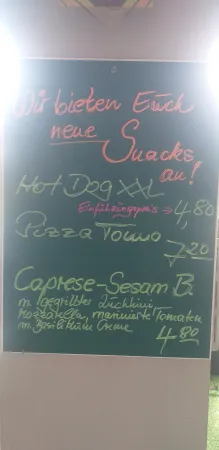 Wir bieten Euch
neue Snacks
an!
Hot Dog XXL
Einführungspreis → 4,80
Pizza Tonno
7,20
Caprese-Sesam B.
m. gegrillter Zucchini,
Mozzarella, marinierte Tomaten
m. Basilikum Creme 4,80